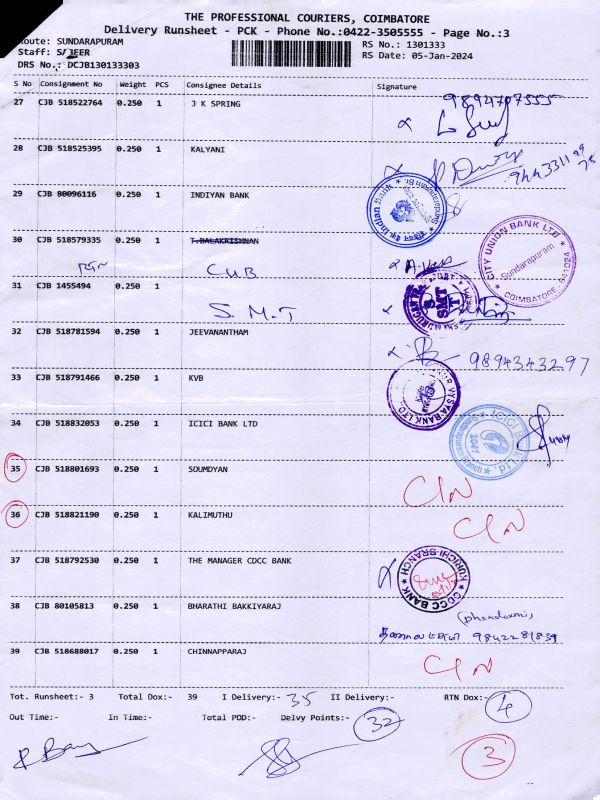 THE PROFESSIONAL COURIERS, COIMBATORE
Delivery Runsheet - PCK - Phone No.:0422-3505555 - Page No.:3
Route: SUNDARAPURAM RS No.: 1301333
Staff: RS Date: 05-Jan-2024
DRS No.: DCJB130133303
S No Consignment No Weight PCS Consignee Details Signature
27 CJB 518522764 0.250 1 J K SPRING 9894707555
28 CJB 518525395 0.250 1 KALYANI
29 CJB 80096116 0.250 1 INDIYAN BANK
Indian Bank
30 CJB 518579335 0.250 1 T.BALAKRISHNAN
CUB
CITY UNION BANK LTD
Sundarapuram
COIMBATORE 641024
31 CJB 1455494 0.250 1
S.M.T
SMT
32 CJB 518781594 0.250 1 JEEVANANTHAM
9894343297
33 CJB 518791466 0.250 1 KVB
VYSYA BANK LTD.
34 CJB 518832053 0.250 1 ICICI BANK LTD
35 CJB 518801693 0.250 1 SOUMDYAN
C/N
36 CJB 518821190 0.250 1 KALIMUTHU
C/N
37 CJB 518792530 0.250 1 THE MANAGER CDCC BANK
KURICHI BRANCH
CDCC BANK
38 CJB 80105813 0.250 1 BHARATHI BAKKIYARAJ
9842281839
39 CJB 518688017 0.250 1 CHINNAPPARAJ
C/N
Tot. Runsheet:- 3 Total Dox:- 39 I Delivery:- 35 II Delivery:- RTN Dox:- 4
Out Time:- In Time:- Total POD:- Delvy Points:- 32
3